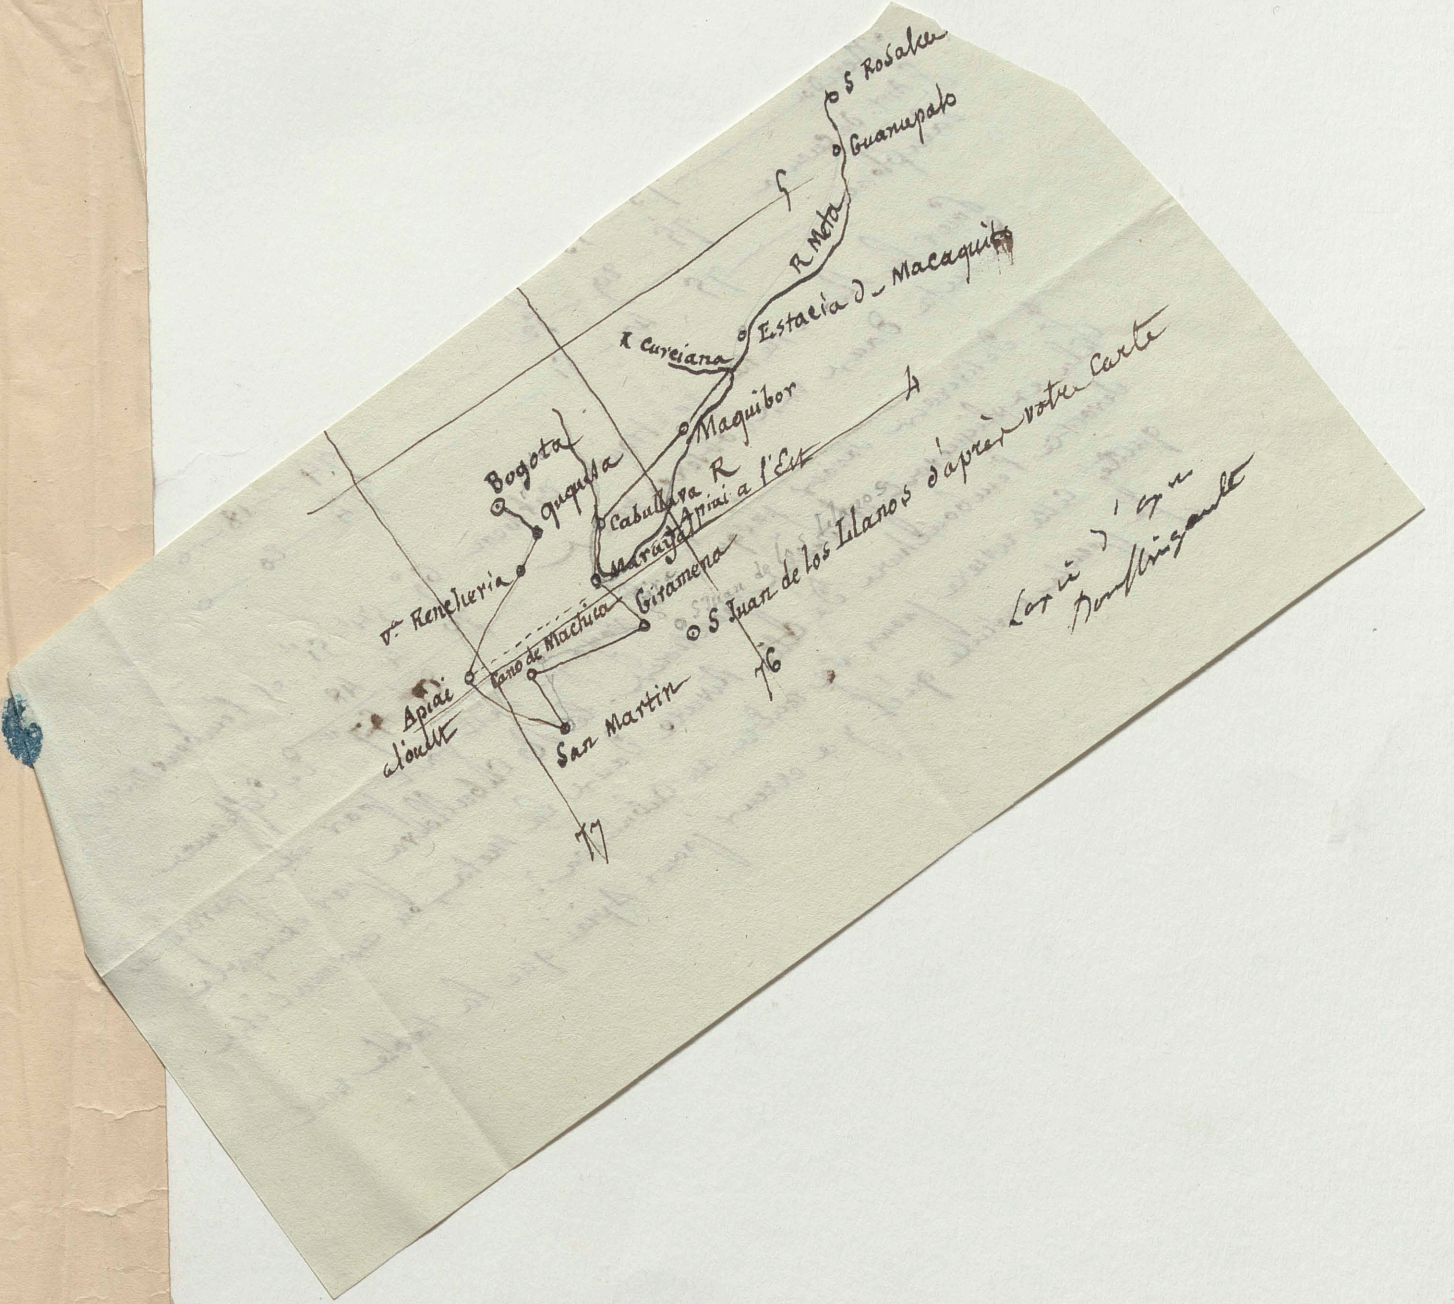 S Rosalia
Guanapalo
5
R Meta
Estacia de Macaquito
R Curciana
Maquibor
4
Bogota
ququesa
Cabullara R
Apiai a l'Est
Maraya
Giramena
Va Rencheria
Cano de Machica
S Juan de los Llanos d'après votre Carte
Apiai
a l'ouest
San Martin
76
77
Copié d'apres
Boussingault